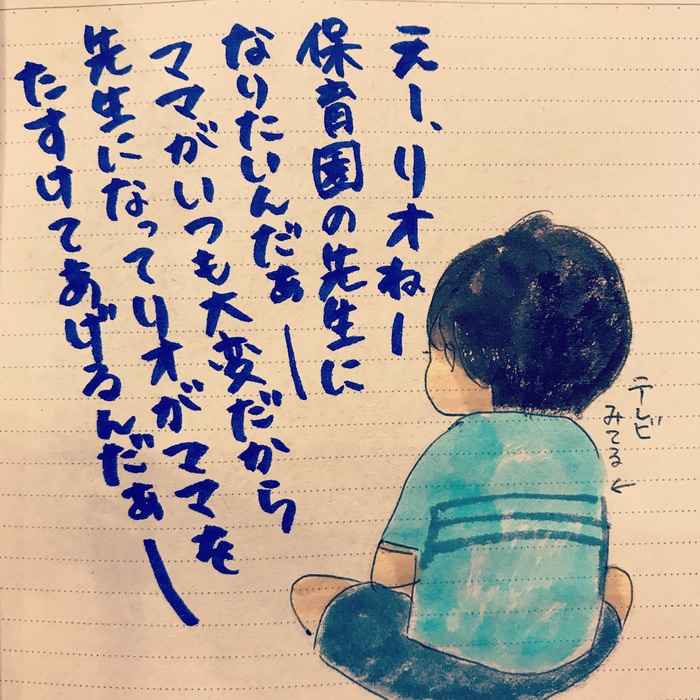 えー、リオねー
保育園の先生に
なりたいんだぁー
ママがいつも大変だから
先生になってリオがママを
たすけてあげるんだぁー
テレビ
みてる←